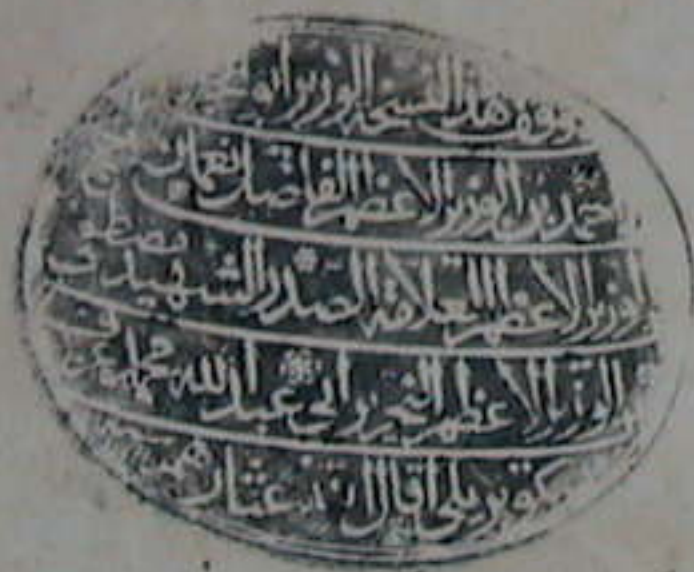 وقف هذا النسخة الوزير ابو
احمد بن الوزير الاعظم الفاضل نعمان
الوزير الاعظم العلامة الصدر الشهيد مصطفى
الوزير الاعظم النحرير ابي عبد الله محمد عرف
بكوبريلى اقال الله عثارهم